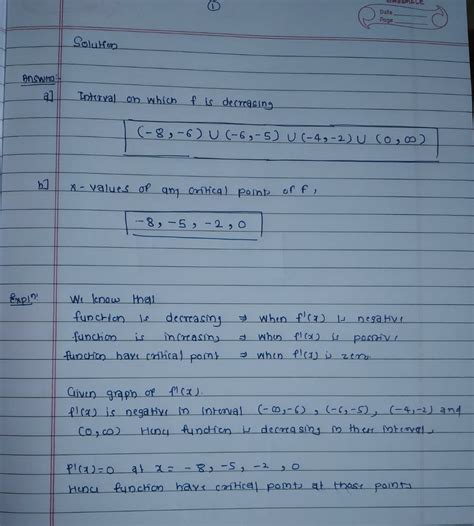 ①
Date
Page
Solution
Answer:-
a] Interval on which f is decreasing
(-8,-6) ∪ (-6,-5) ∪ (-4,-2) ∪ (0,∞)
b] x-values of any critical points of f,
-8, -5, -2, 0
Expln: We know that
function is decreasing ⇒ when f'(x) is negative
function is increasing ⇒ when f'(x) is positive
function have critical point ⇒ when f'(x) is zero.
Given graph of f'(x).
f'(x) is negative in interval (-∞,-6), (-6,-5), (-4,-2) and
(0,∞) Hence function is decreasing in these interval.
f'(x)=0 at x= -8, -5, -2, 0
Hence function have critical points at those points